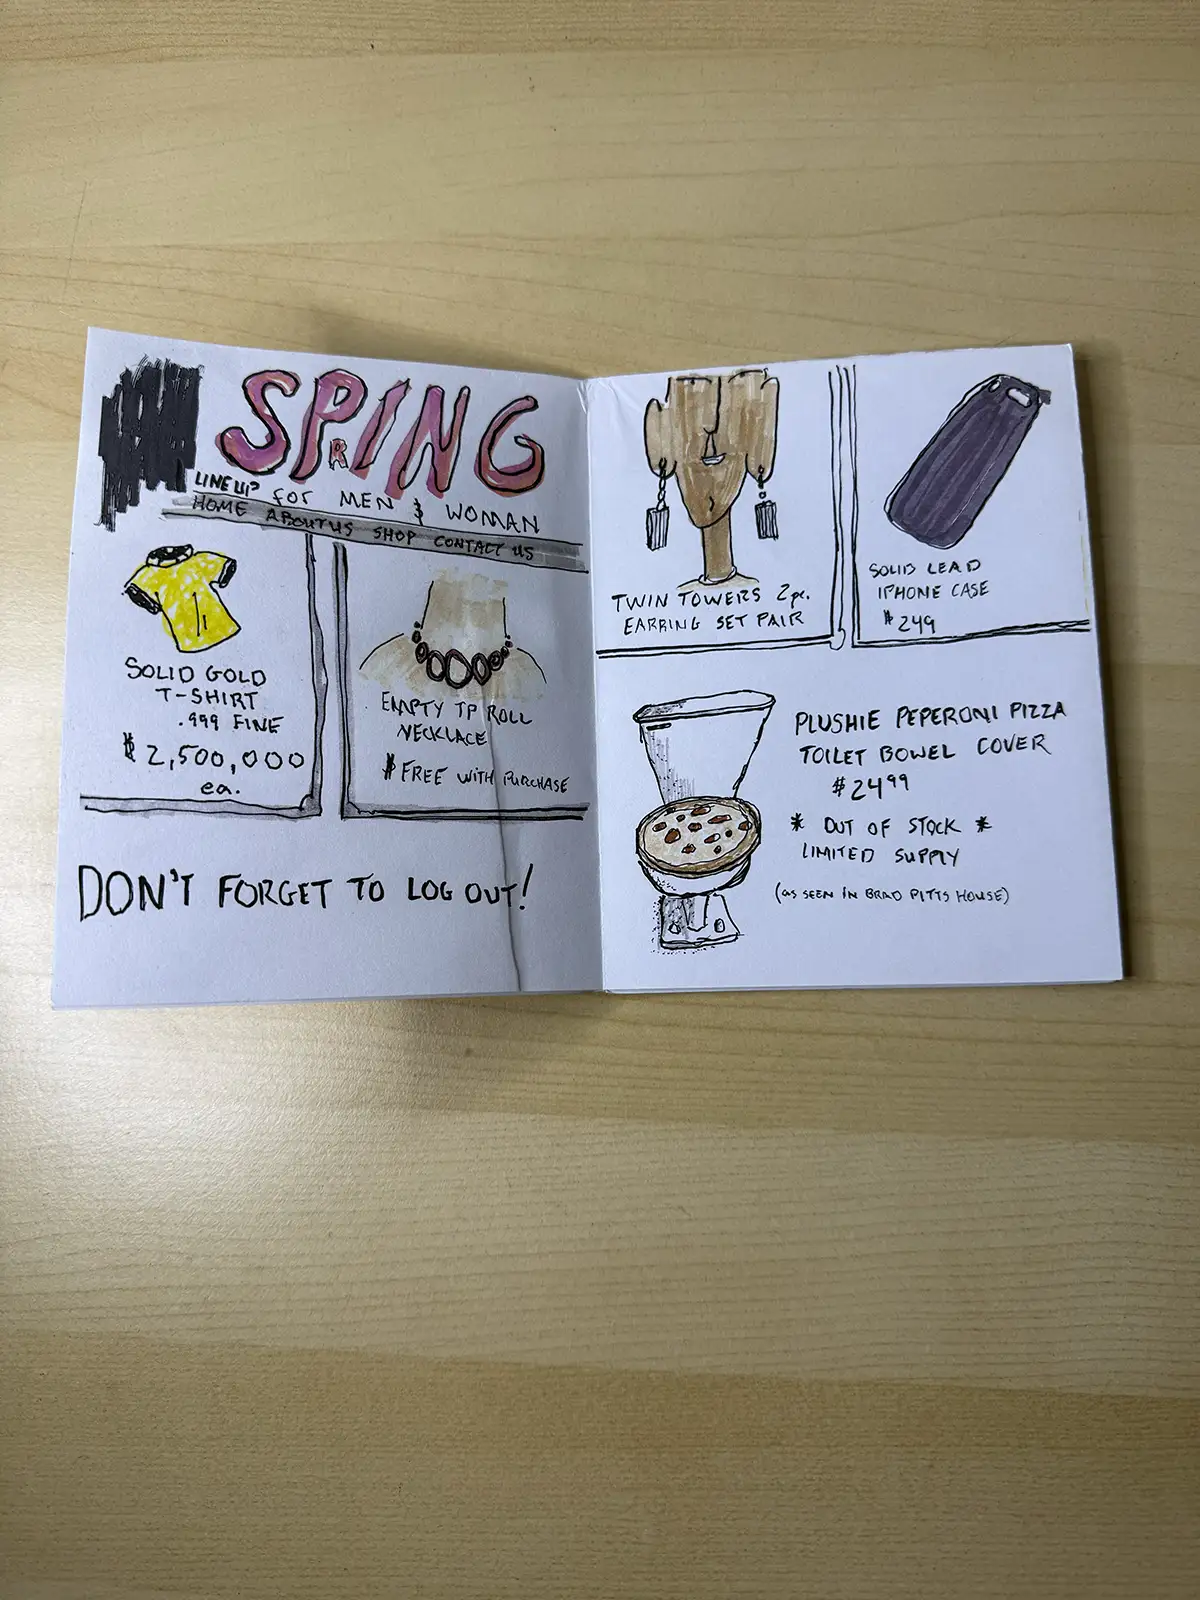 SPRING
LINE UP for MEN & WOMAN
HOME ABOUT US SHOP CONTACT US
SOLID GOLD
T-SHIRT
.999 FINE
$2,500,000
ea.
EMPTY TP ROLL
NECKLACE
$FREE WITH PURCHASE
DON'T FORGET TO LOG OUT!
TWIN TOWERS 2pc.
EARRING SET PAIR
SOLID LEAD
IPHONE CASE
$249
PLUSHIE PEPERONI PIZZA
TOILET BOWEL COVER
$24.99
* OUT OF STOCK *
LIMITED SUPPLY
(AS SEEN IN BRAD PITTS HOUSE)